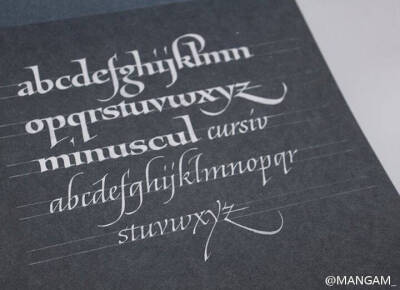 abcdefghijklmn
opqrstuvwxyz
minuscul cursiv
abcdefghijklmnopqr
stuvwxyz
@MANGAM_